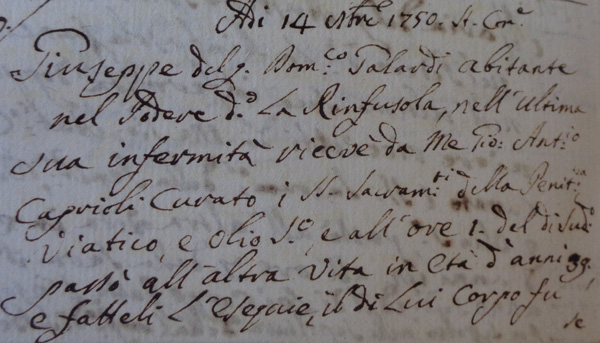 Adi 14 9bre 1750. St. Come
Giuseppe del q. Dom.co Talardi abitante
nel Podere d.o La Rinfusola, nell'ultima
sua infermità ricevè da Me Gio: Ant.io
Caprioli Curato i SS. Sacram.ti della Penit.za
Viatico, e Olio S.to, e all'ore 1. del disud.o
passò all'altra Vita in età d'anni 39.
e fatteli l'esequie, il di Lui Corpo fu
se